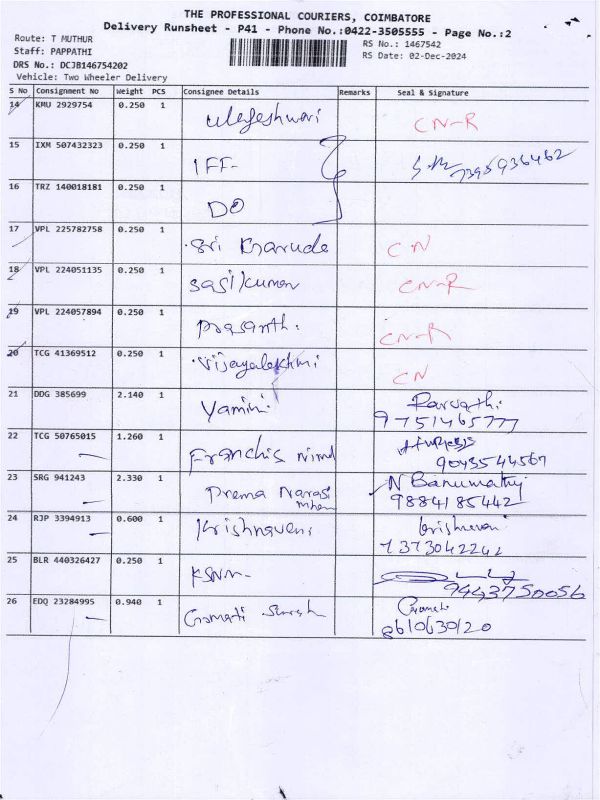 THE PROFESSIONAL COURIERS, COIMBATORE
Delivery Runsheet - P41 - Phone No.:0422-3505555 - Page No.:2
Route: T MUTHUR
Staff: PAPPATHI
RS No.: 1467542
RS Date: 02-Dec-2024
DRS No.: DCJB146754202
Vehicle: Two Wheeler Delivery
S No Consignment No Weight PCS Consignee Details Remarks Seal & Signature
14 KMU 2929754 0.250 1 CN-R
15 IXM 507432323 0.250 1 IFF 7395936462
16 TRZ 140018181 0.250 1 DO
17 VPL 225782758 0.250 1 Sri Garuda CN
18 VPL 224051135 0.250 1 Sasikumar CN-R
19 VPL 224057894 0.250 1 Prasanth. CN-R
20 TCG 41369512 0.250 1 Vijayalakhmi CN
21 DDG 385699 2.140 1 Yamini Parvathi
9751465777
22 TCG 50765015 1.260 1 Franchis
9043544567
23 SRG 941243 2.330 1 Prema Narasi N Banumathy
9884185442
24 RJP 3394913 0.600 1 Krishnaveni krishnaveni
7373042242
25 BLR 440326427 0.250 1
9443750056
26 EDQ 23284995 0.940 1 Gomati Suresh
8610630120